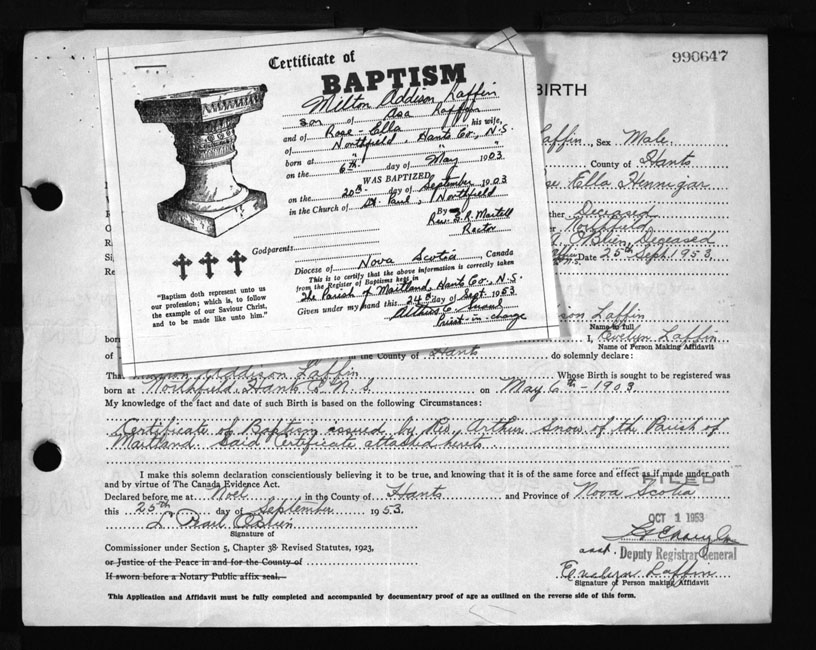 990647
Certificate of
BAPTISM
Milton Addison Laffin
son of Asa Laffin
and of Rose-Ella his wife,
of Northfield, Hants Co., N.S.
born at " " "
on the 6th. day of May 1903
WAS BAPTIZED
on the 20th. day of September 1903
in the Church of St. Paul, Northfield
By
Rev. G. R. Martell
Rector
Godparents
Diocese of Nova Scotia, Canada
This is to certify that the above information is correctly taken
from the Register of Baptisms kept in
The Parish of Maitland, Hants Co., N.S.
Given under my hand this 24th day of Sept. 1953
Priest-in-charge
"Baptism doth represent unto us
our profession; which is, to follow
the example of our Saviour Christ,
and to be made like unto him."
BIRTH
Laffin, Sex Male
County of Hants
Ella Hennigar
Deceased
Northfield
O'Brien, Deceased
Date 25th Sept. 1953
Laffin
Name in full
born
I, Evelyn Laffin
Name of Person Making Affidavit
in the County of Hants do solemnly declare:
That Addison Laffin Whose Birth is sought to be registered was
born at Northfield Hants Co N.S on May 6th - 1903.
My knowledge of the fact and date of such Birth is based on the following Circumstances:
Certificate of Baptism issued by Rev. Arthur Snow of the Parish of
Maitland. Said Certificate attached hereto.
I make this solemn declaration conscientiously believing it to be true, and knowing that it is of the same force and effect as if made under oath
and by virtue of The Canada Evidence Act.
FILED
Declared before me at Noel in the County of Hants and Province of Nova Scotia
this 25th day of September 1953.
OCT 1 1953
L. Pearl O'Brien
Signature of
asst. Deputy Registrar General
Commissioner under Section 5, Chapter 38 Revised Statutes, 1923,
or Justice of the Peace in and for the County of
Evelyn Laffin
Signature of Person making Affidavit
If sworn before a Notary Public affix seal.
This Application and Affidavit must be fully completed and accompanied by documentary proof of age as outlined on the reverse side of this form.